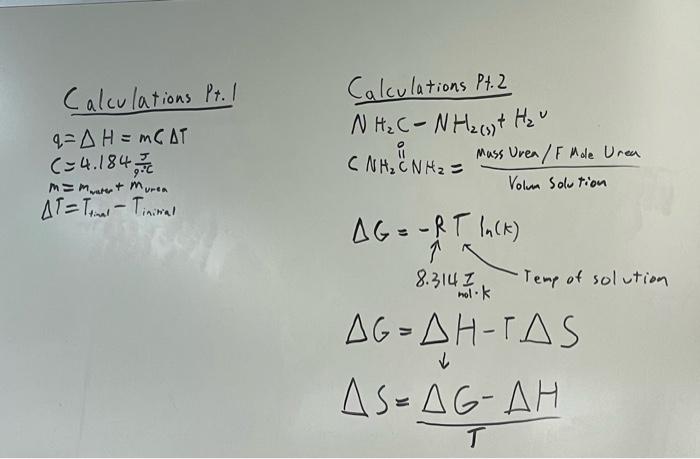 Calculations Pt. 1
q = ΔH = mCΔT
C = 4.184 J/g·°C
m = m water + m urea
ΔT = T final - T initial
Calculations Pt. 2
NH₂C - NH₂(s) + H₂
O
C NH₂CNH₂ = Mass Urea / F Mole Urea
Volum Solution
ΔG = -RT ln(k)
8.314 J/mol·k
Temp of solution
ΔG = ΔH - TΔS
↓
ΔS = ΔG - ΔH
T